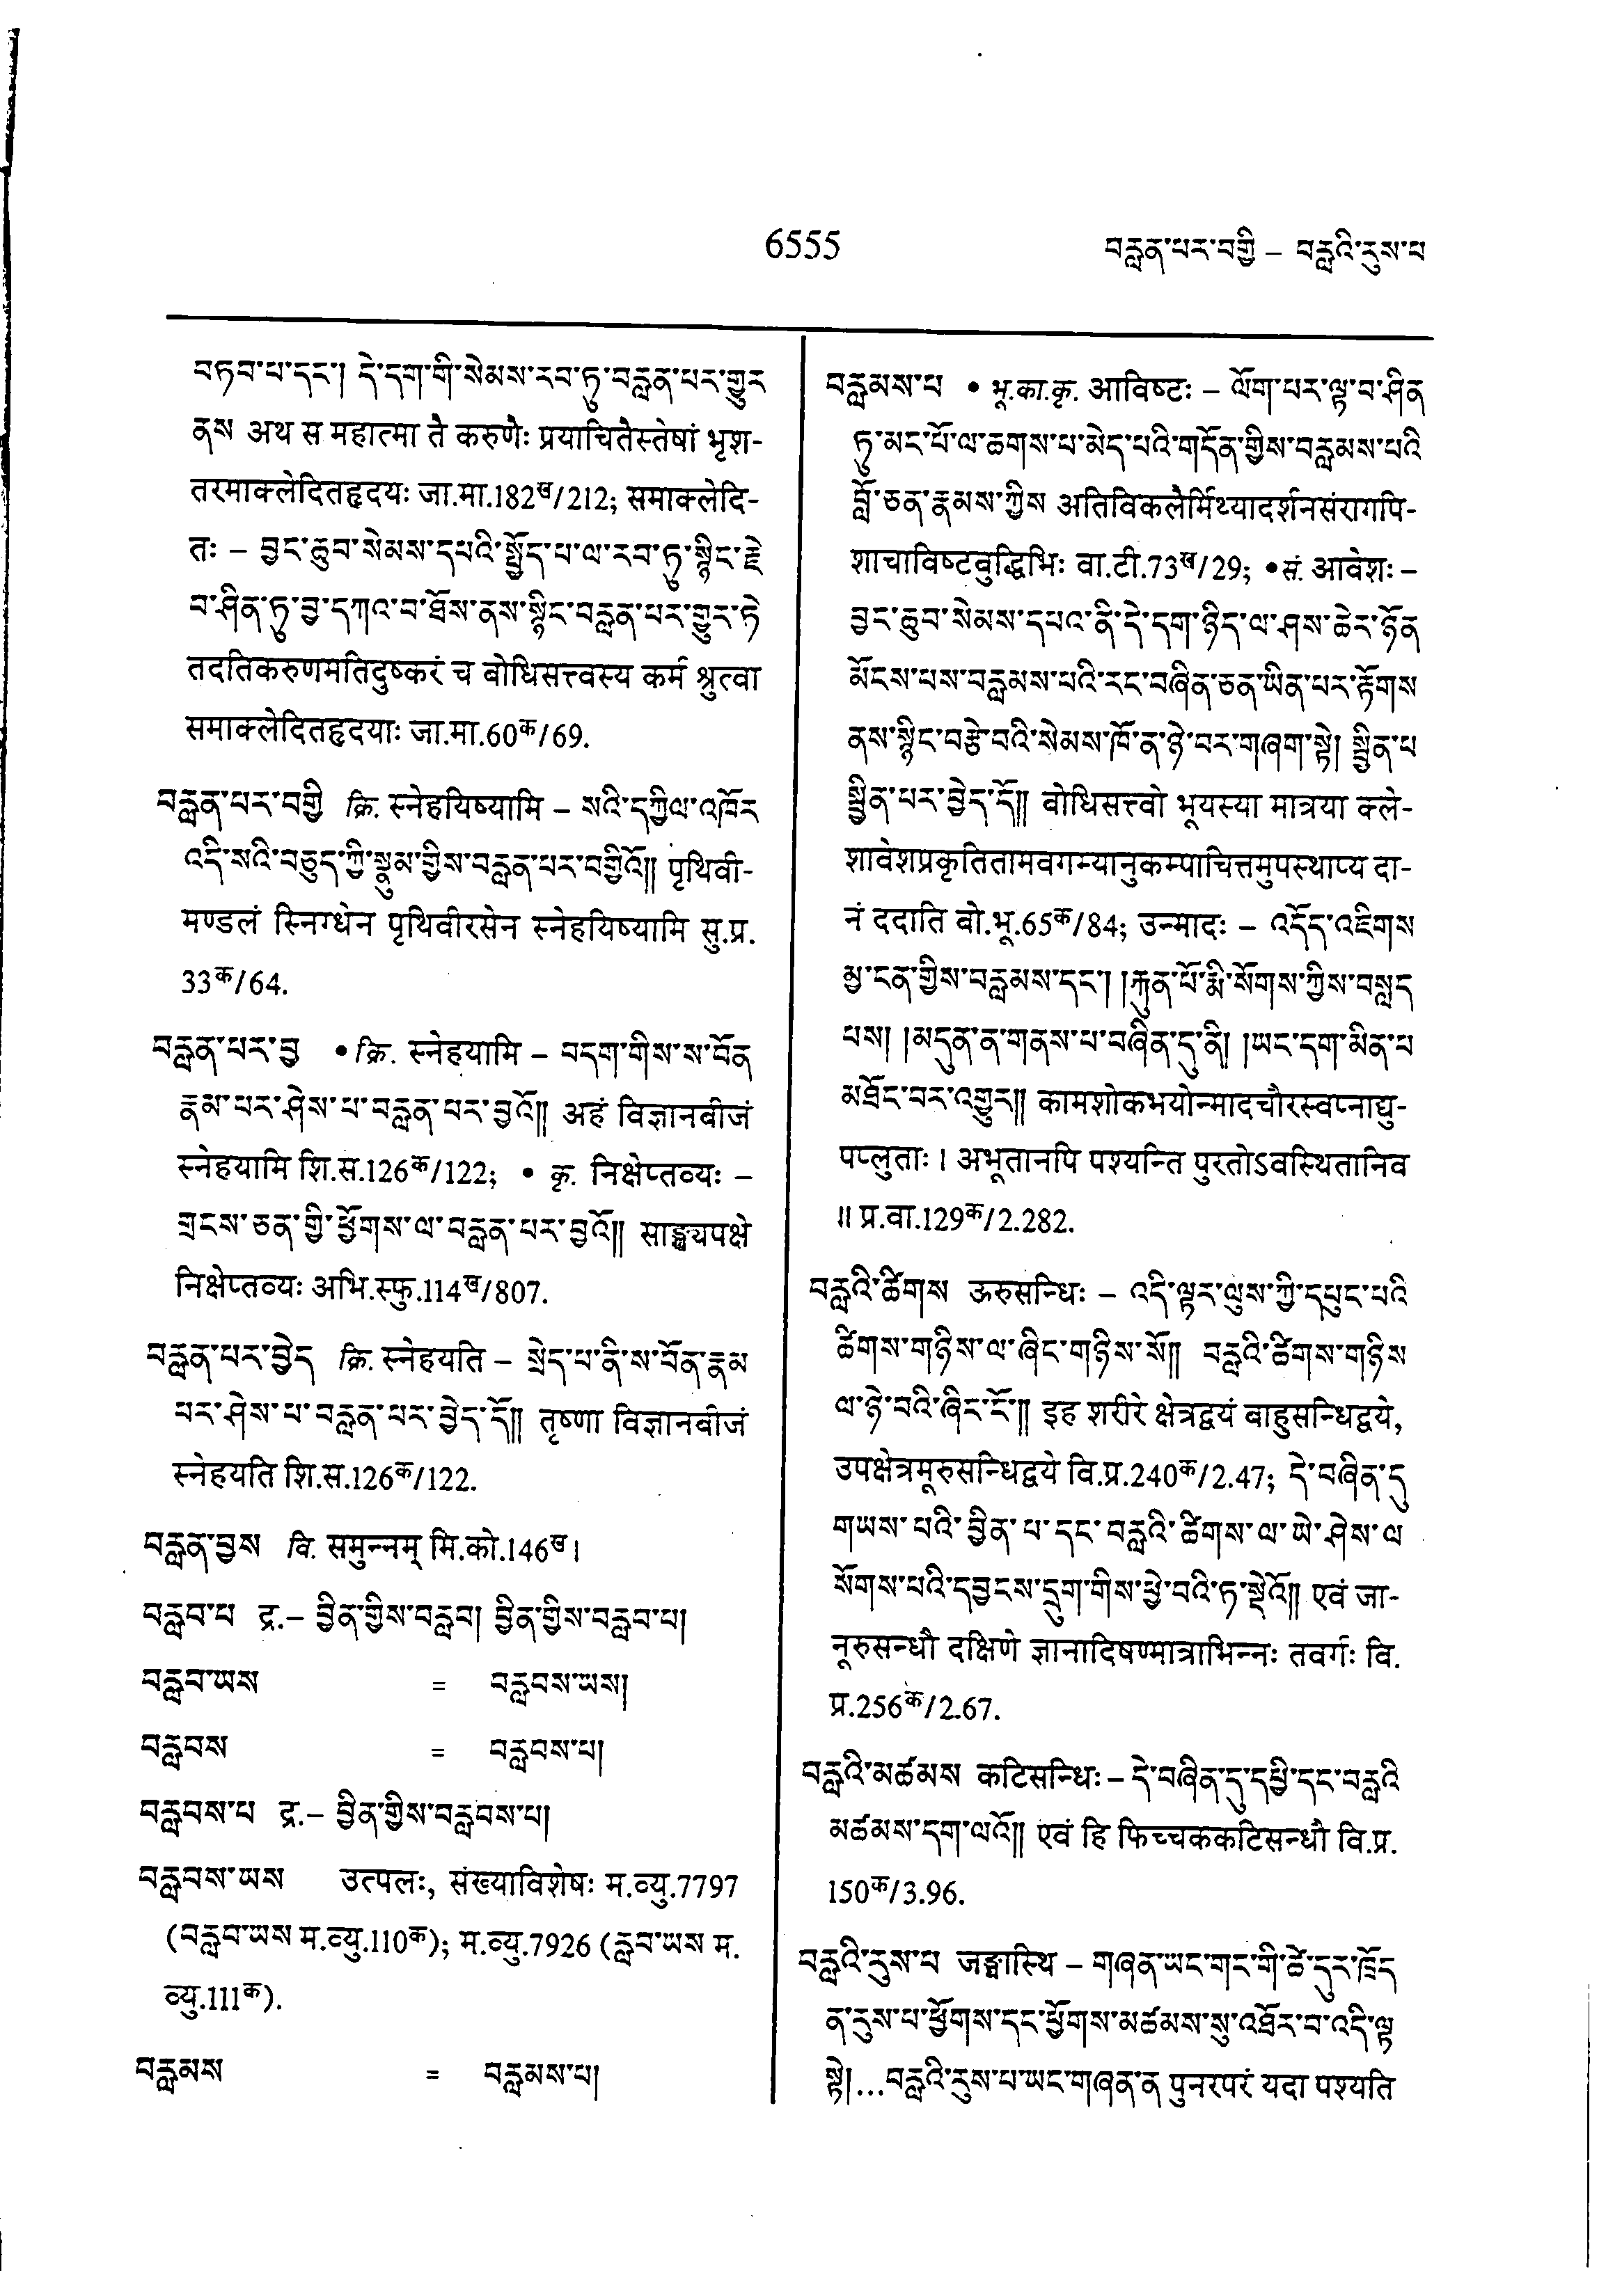 6555
བརླན་པར་བགྱི – བརླའི་རུས་པ
བཏབ་པ་དང་། དེ་དག་གི་སེམས་རབ་ཏུ་བརླན་པར་གྱུར
ནས अथ स महात्मा तै करुणैः प्रयाचितैस्तेषां भृश-
तरमाक्लेदितहृदयः जा.मा.182ख/212; समाक्लेदि-
तः – བྱང་ཆུབ་སེམས་དཔའི་སྤྱོད་པ་ལ་རབ་ཏུ་སྙིང་རྗེ
བ་ཤིན་ཏུ་བྱ་དཀའ་བ་ཐོས་ནས་སྙིང་བརླན་པར་གྱུར་ཏེ
तदतिकरुणमतिदुष्करं च बोधिसत्त्वस्य कर्म श्रुत्वा
समाक्लेदितहृदयाः जा.मा.60क/69.
བརླན་པར་བགྱི क्रि. स्नेहयिष्यामि – སའི་དཀྱིལ་འཁོར
འདི་སའི་བཅུད་ཀྱི་སྣུམ་གྱིས་བརླན་པར་བགྱིའོ།། पृथिवी-
मण्डलं स्निग्धेन पृथिवीरसेन स्नेहयिष्यामि सु.प्र.
33क/64.
བརླན་པར་བྱ • क्रि. स्नेहयामि – བདག་གིས་ས་བོན
རྣམ་པར་ཤེས་པ་བརླན་པར་བྱའོ།། अहं विज्ञानबीजं
स्नेहयामि शि.स.126क/122; • कृ. निक्षेप्तव्यः –
གྲངས་ཅན་གྱི་ཕྱོགས་ལ་བརླན་པར་བྱའོ།། साङ्ख्यपक्षे
निक्षेप्तव्यः अभि.स्फु.114ख/807.
བརླན་པར་བྱེད क्रि. स्नेहयति – སྲེད་པ་ནི་ས་བོན་རྣམ
པར་ཤེས་པ་བརླན་པར་བྱེད་དོ།། तृष्णा विज्ञानबीजं
स्नेहयति शि.स.126क/122.
བརླན་བྱས वि. समुन्नम् मि.को.146ख।
བརླབ་པ द्र.– བྱིན་གྱིས་བརླབ། བྱིན་གྱིས་བརླབ་པ།
བརླབ་ཡས = བརླབས་ཡས།
བརླབས = བརླབས་པ།
བརླབས་པ द्र.– བྱིན་གྱིས་བརླབས་པ།
བརླབས་ཡས उत्पलः, संख्याविशेषः म.व्यु.7797
(བརླབ་ཡས म.व्यु.110क); म.व्यु.7926 (རླབ་ཡས म.
व्यु.111क).
བརླམས = བརླམས་པ།
བརླམས་པ • भू.का.कृ. आविष्टः – ལོག་པར་ལྟ་བ་ཤིན
ཏུ་མང་པོ་ལ་ཆགས་པ་མེད་པའི་གདོན་གྱིས་བརླམས་པའི
བློ་ཅན་རྣམས་ཀྱིས अतिविकलैर्मिथ्यादर्शनसंरागपि-
शाचाविष्टबुद्धिभिः वा.टी.73ख/29; • सं. आवेशः –
བྱང་ཆུབ་སེམས་དཔའ་ནི་དེ་དག་ཉིད་ལ་ཤས་ཆེར་ཉོན
མོངས་པས་བརླམས་པའི་རང་བཞིན་ཅན་ཡིན་པར་རྟོགས
ནས་སྙིང་བརྩེ་བའི་སེམས་ཁོ་ན་ཉེ་བར་གཞག་སྟེ། སྦྱིན་པ
སྦྱིན་པར་བྱེད་དོ།། बोधिसत्त्वो भूयस्या मात्रया क्ले-
शावेशप्रकृतितामवगम्यानुकम्पाचित्तमुपस्थाप्य दा-
नं ददाति बो.भू.65क/84; उन्मादः – འདོད་འཇིགས
མྱ་ངན་གྱིས་བརླམས་དང་། །རྐུན་པོ་རྨི་སོགས་ཀྱིས་བསླད
པས། །མདུན་ན་གནས་པ་བཞིན་དུ་ནི། །ཡང་དག་མིན་པ
མཐོང་བར་འགྱུར།། कामशोकभयोन्मादचौरस्वप्नाद्यु-
पप्लुताः। अभूतानपि पश्यन्ति पुरतोऽवस्थितानिव
॥ प्र.वा.129क/2.282.
བརླའི་ཚིགས ऊरुसन्धिः – འདི་ལྟར་ལུས་ཀྱི་དཔུང་པའི
ཚིགས་གཉིས་ལ་ཞིང་གཉིས་སོ།། བརླའི་ཚིགས་གཉིས
ལ་ཉེ་བའི་ཞིང་ངོ་།། इह शरीरे क्षेत्रद्वयं बाहुसन्धिद्वये,
उपक्षेत्रमूरुसन्धिद्वये वि.प्र.240क/2.47; དེ་བཞིན་དུ
གཡས་པའི་བྱིན་པ་དང་བརླའི་ཚིགས་ལ་ཡེ་ཤེས་ལ
སོགས་པའི་དབྱངས་དྲུག་གིས་ཕྱེ་བའི་ཏ་སྡེའོ།། एवं जा-
नूरुसन्धौ दक्षिणे ज्ञानादिषण्मात्राभिन्नः तवर्गः वि.
प्र.256क/2.67.
བརླའི་མཚམས कटिसन्धिः – དེ་བཞིན་དུ་དཔྱི་དང་བརླའི
མཚམས་དག་ལའོ།། एवं हि फिच्चककटिसन्धौ वि.प्र.
150क/3.96.
བརླའི་རུས་པ जङ्घास्थि – གཞན་ཡང་གང་གི་ཚེ་དུར་ཁྲོད
ན་རུས་པ་ཕྱོགས་དང་ཕྱོགས་མཚམས་སུ་འཐོར་བ་འདི་ལྟ
སྟེ།...བརླའི་རུས་པ་ཡང་གཞན་ན पुनरपरं यदा पश्यति